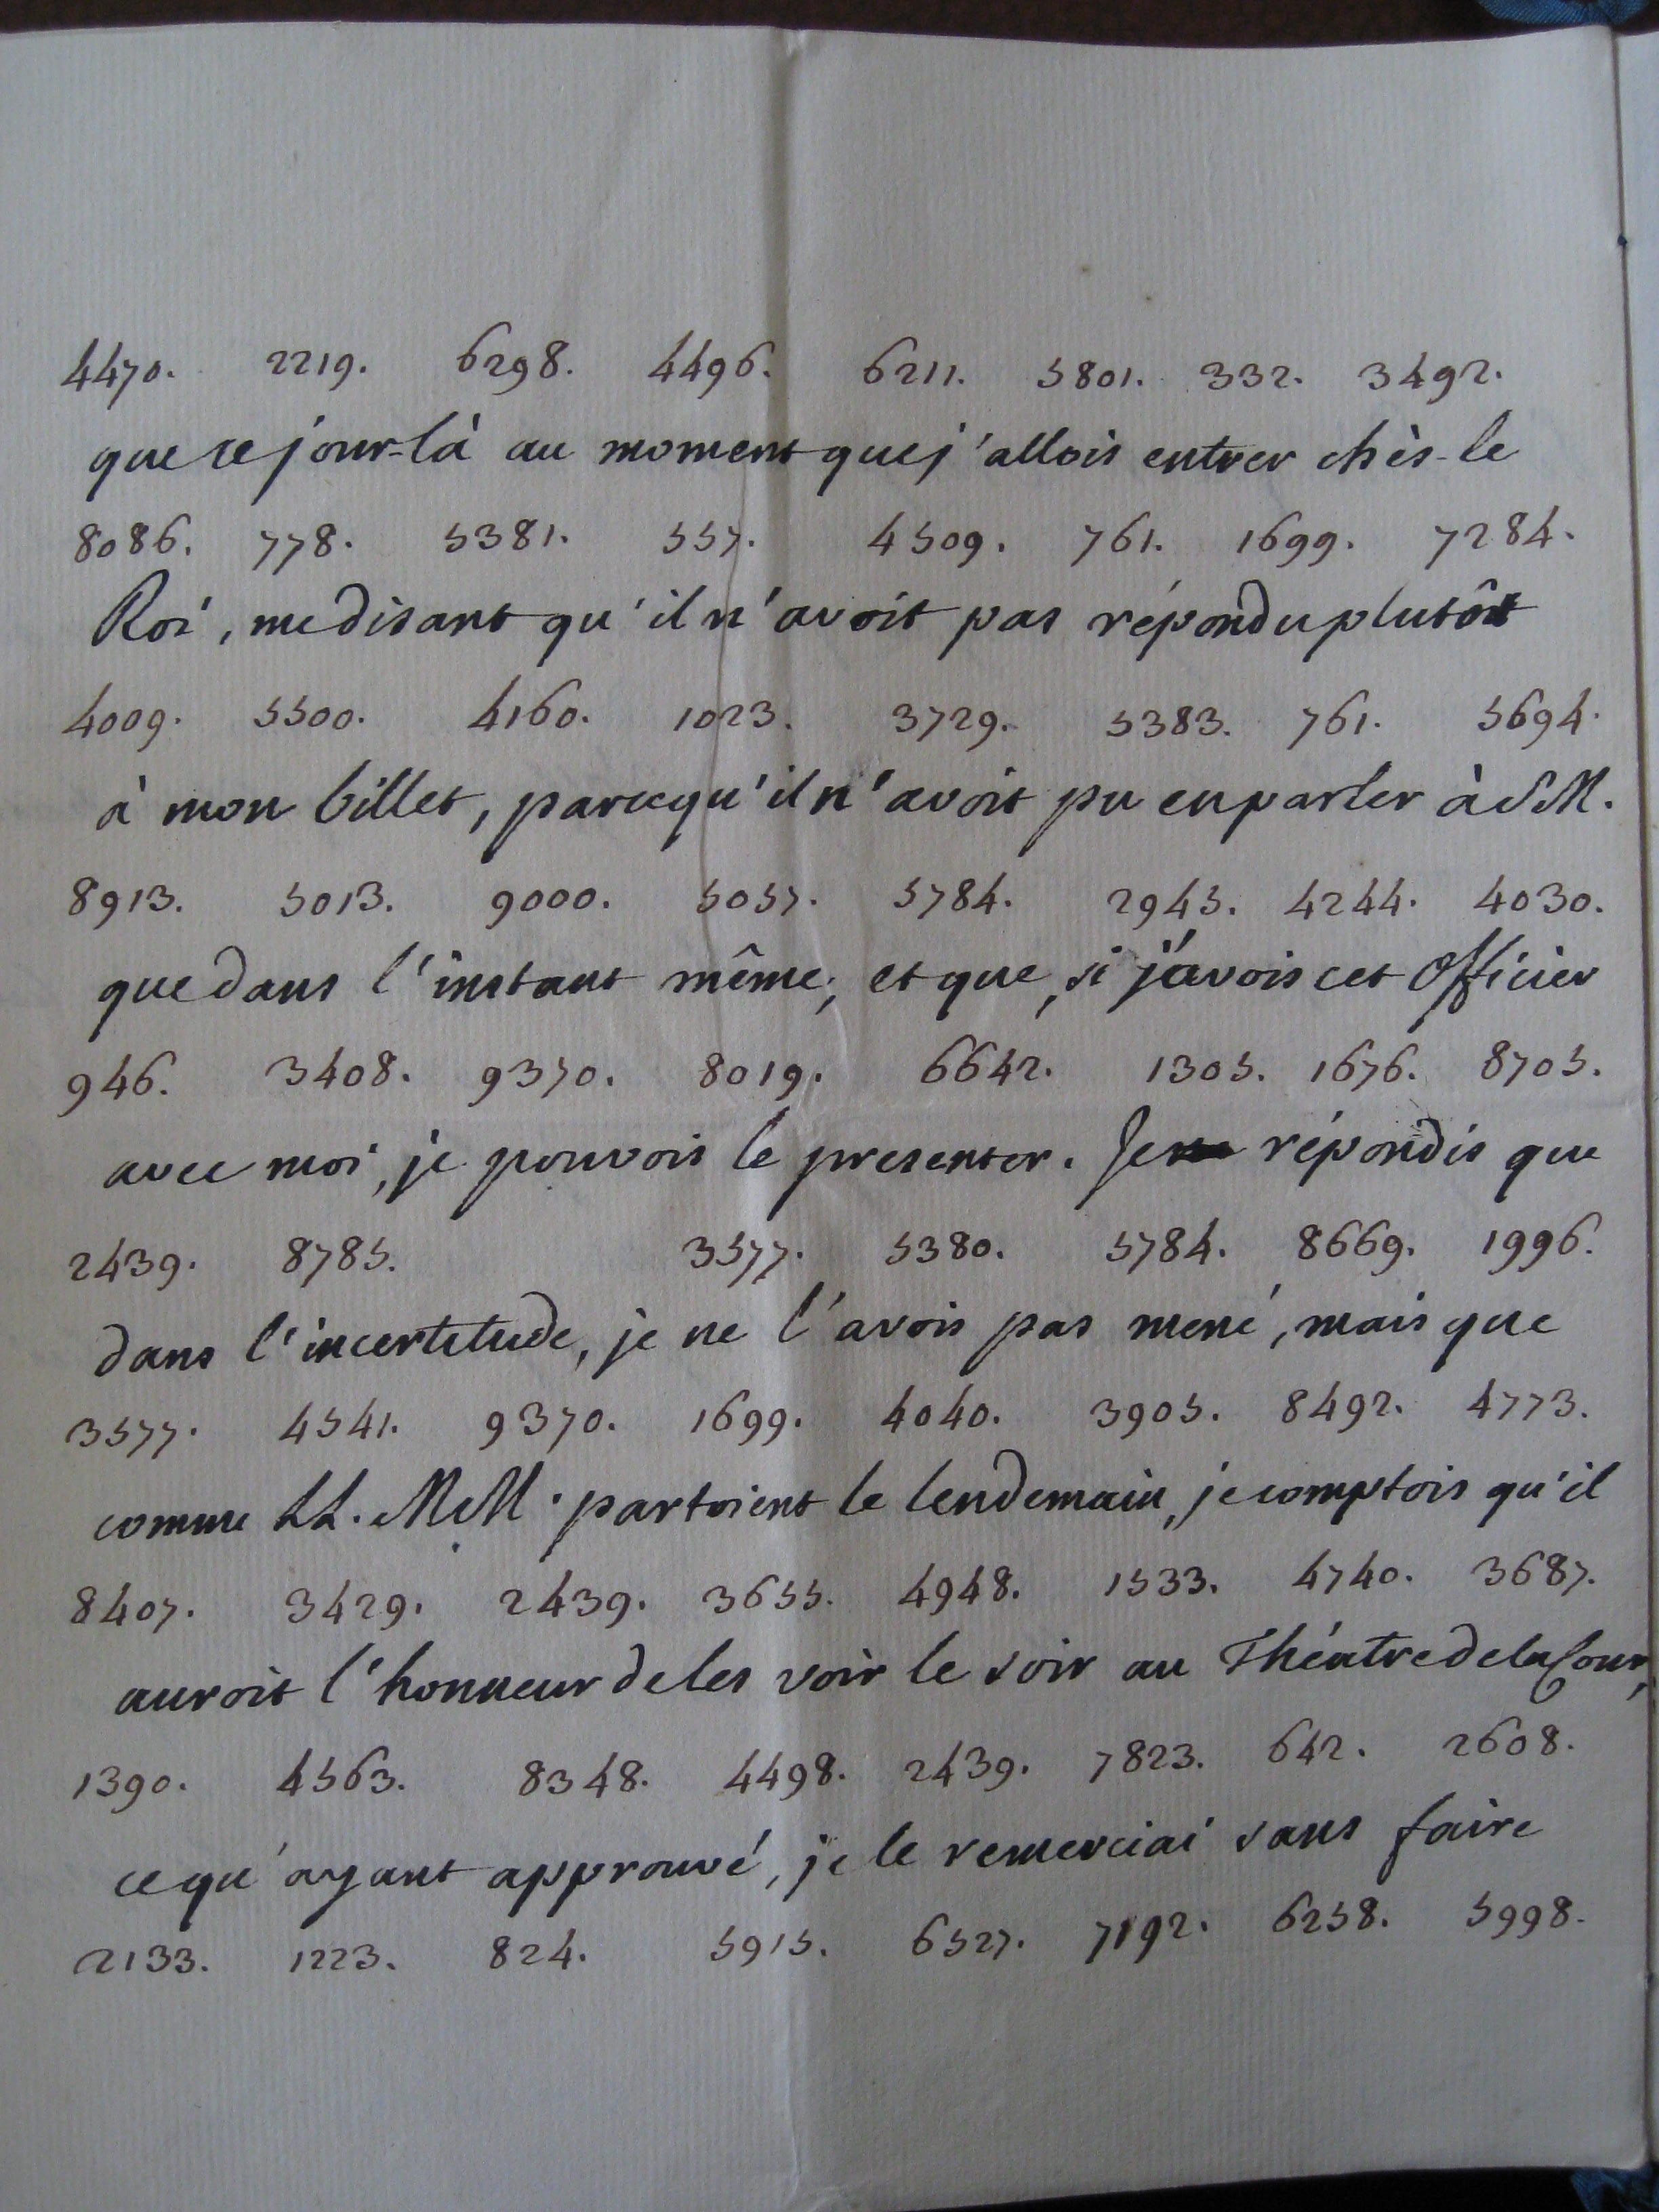 4470. 2219. 6298. 4496. 6211. 5801. 332. 3492.
que ce jour-là au moment que j'allois entrer chès-le
8086. 778. 5381. 557. 4509. 761. 1699. 7284.
Roi, me disant qu'il n'avoit pas répondu plutôt
4009. 5500. 4160. 1023. 3729. 5383. 761. 5694.
à mon billet, parcequ'il n'avoit pu en parler à S.M.
8913. 5013. 9000. 5057. 5784. 2945. 4244. 4030.
que dans l'instant même; et que, si j'avois cet Officier
946. 3408. 9370. 8019. 6642. 1305. 1676. 8705.
avec moi, je pouvois le presenter. Je répondis que
2439. 8785. 3577. 5380. 5784. 8669. 1996.
dans l'incertitude, je ne l'avois pas mené, mais que
3577. 4541. 9370. 1699. 4040. 3905. 8492. 4773.
comme LL. MM. partoient le lendemain, je comptois qu'il
8407. 3429. 2439. 3655. 4948. 1533. 4740. 3687.
auroit l'honneur de les voir le soir au Théatre de la Cour,
1390. 4563. 8348. 4498. 2439. 7823. 642. 2608.
ce qu'ayant approuvé, je le remerciai sans faire
2133. 1223. 824. 5915. 6527. 7192. 6258. 5998.